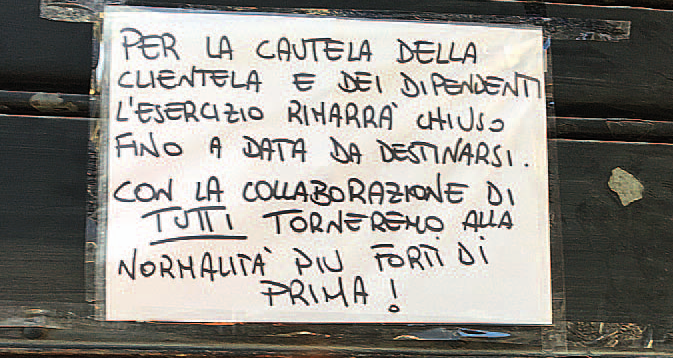 PER LA CAUTELA DELLA
CLIENTELA E DEI DIPENDENTI
L'ESERCIZIO RIMARRA' CHIUSO
FINO A DATA DA DESTINARSI.
CON LA COLLABORAZIONE DI
TUTTI TORNEREMO ALLA
NORMALITA' PIU FORTI DI
PRIMA!